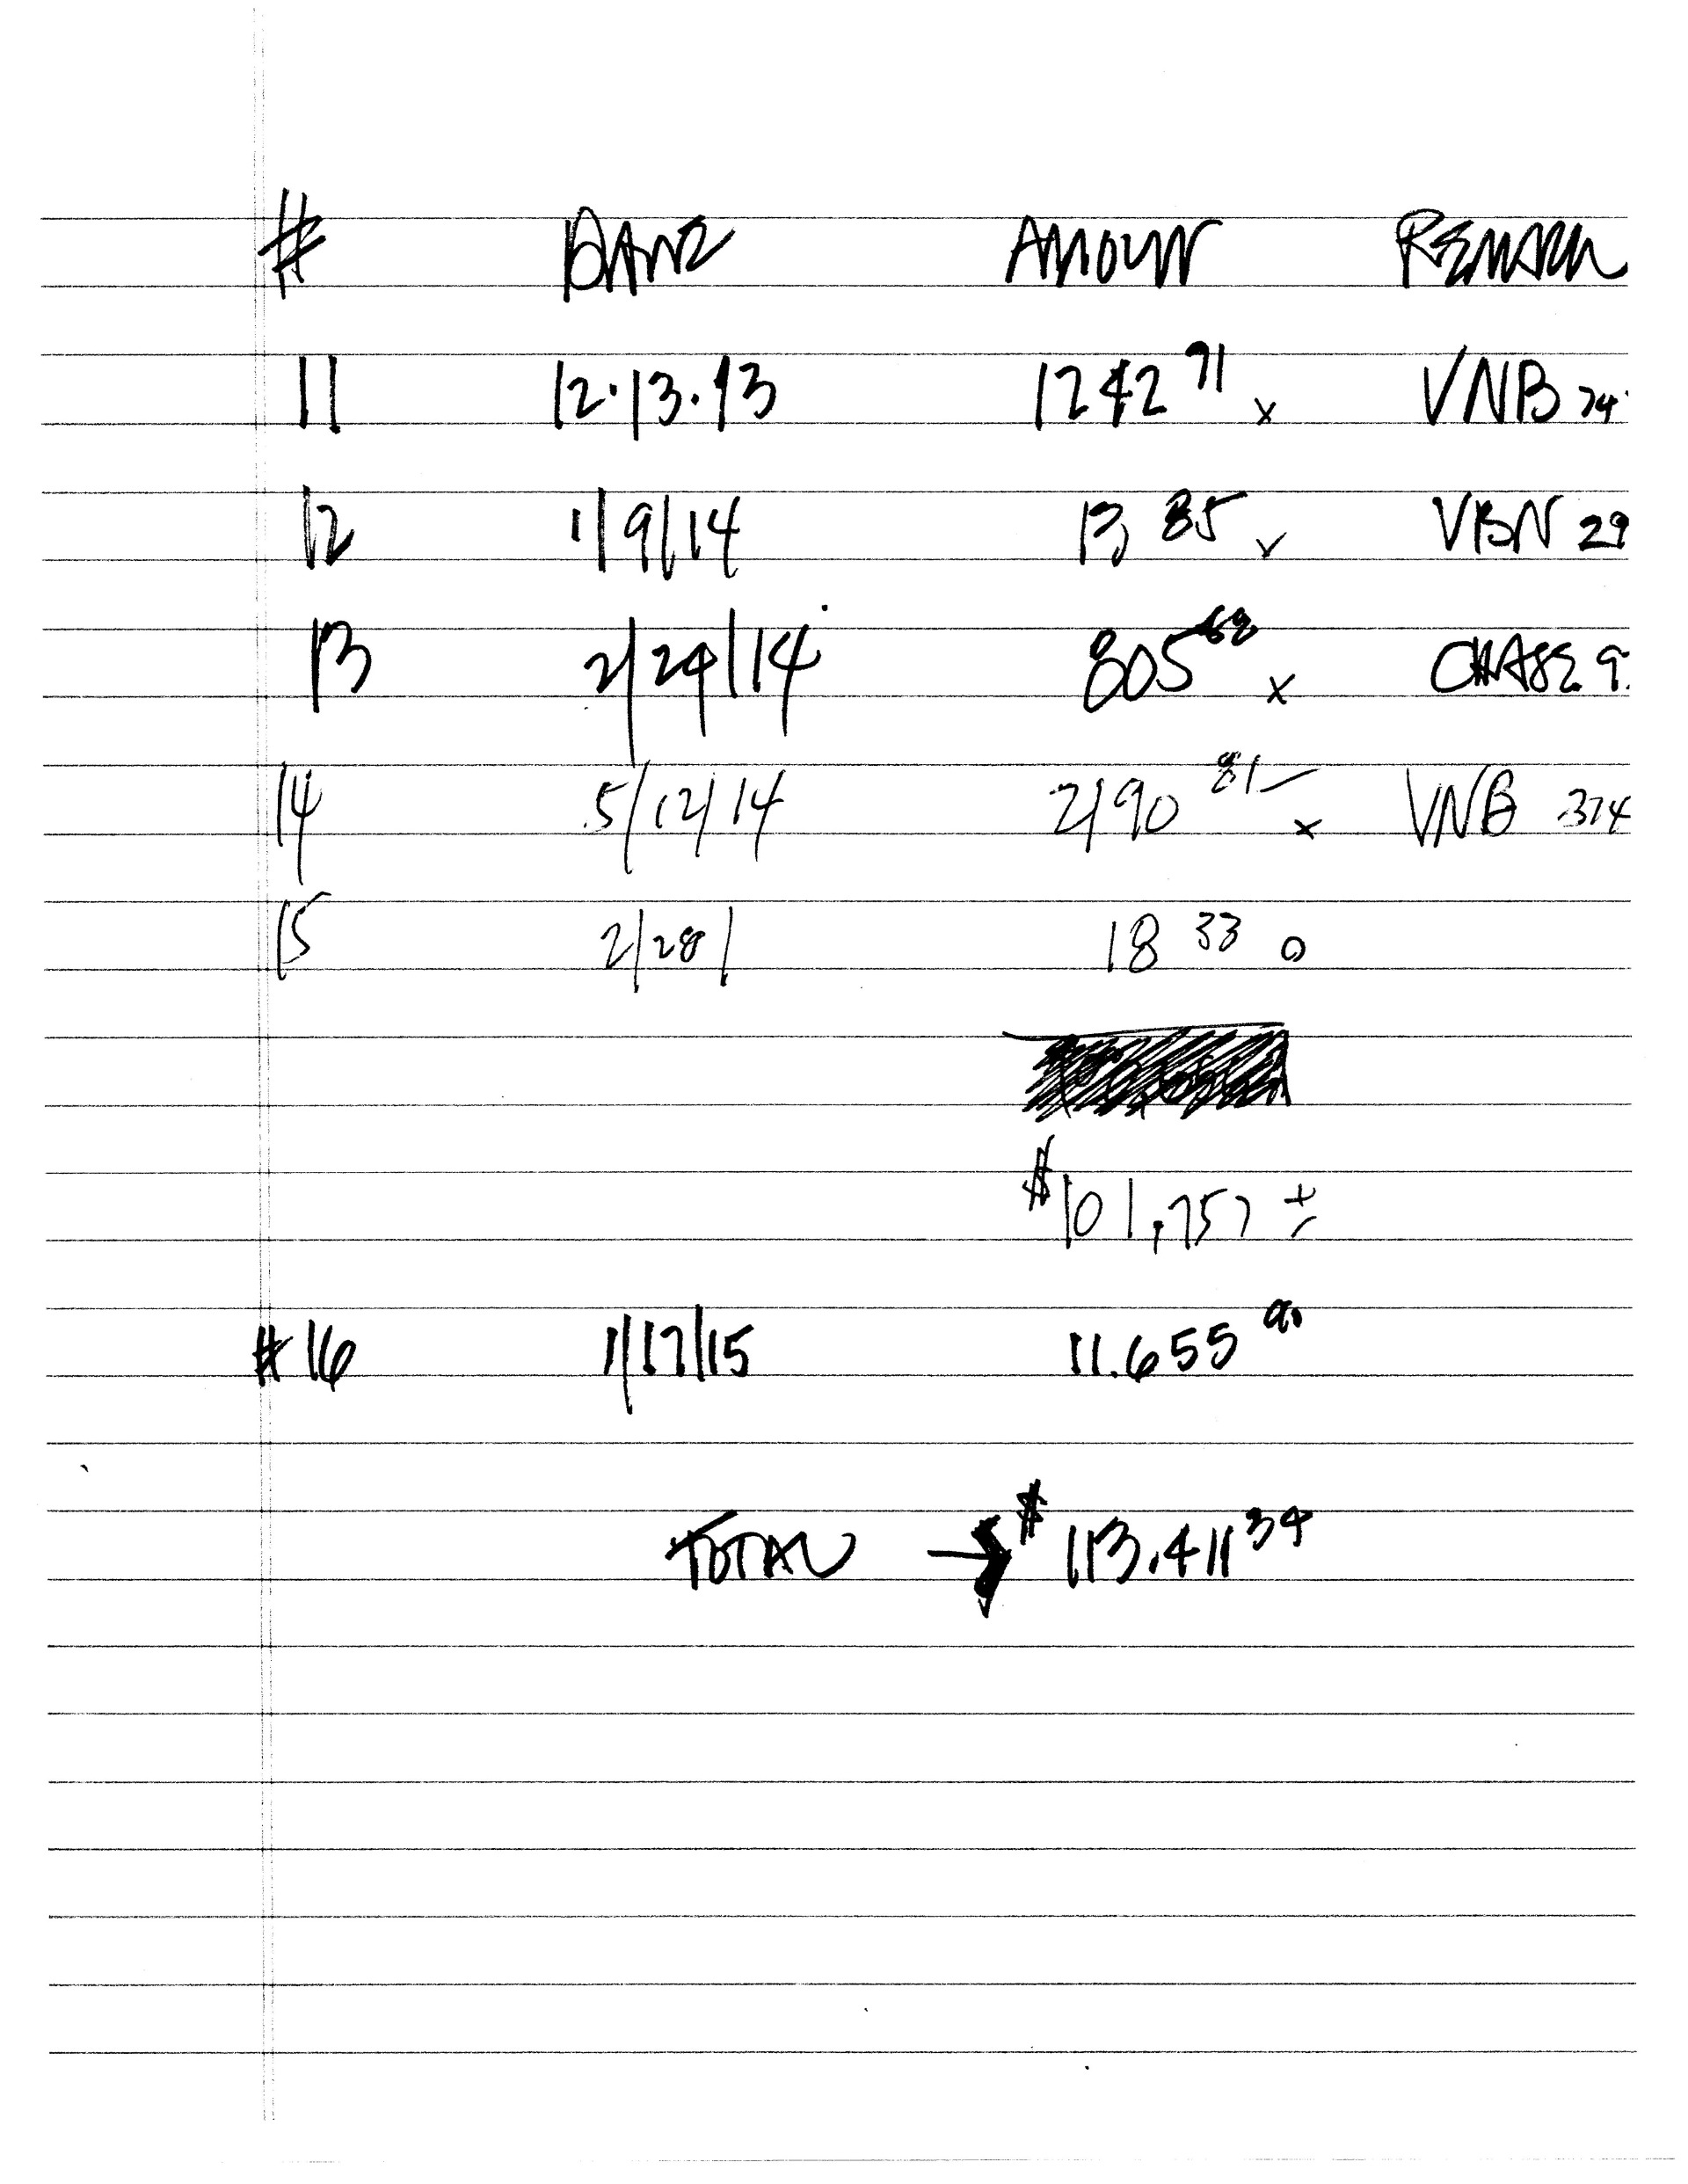 # DATE AMOUNT REMARK
11 12.13.13 1242 71 x VNB 74
12 1/9/14 13 85 x VBN 29
13 2/24/14 805 62 x CHASE 9
14 5/12/14 2190 81 x VNB 374
15 2/28/ 18 33 0
$101,757 ±
#16 1/17/15 11.655 90
TOTAL → $113.411 34